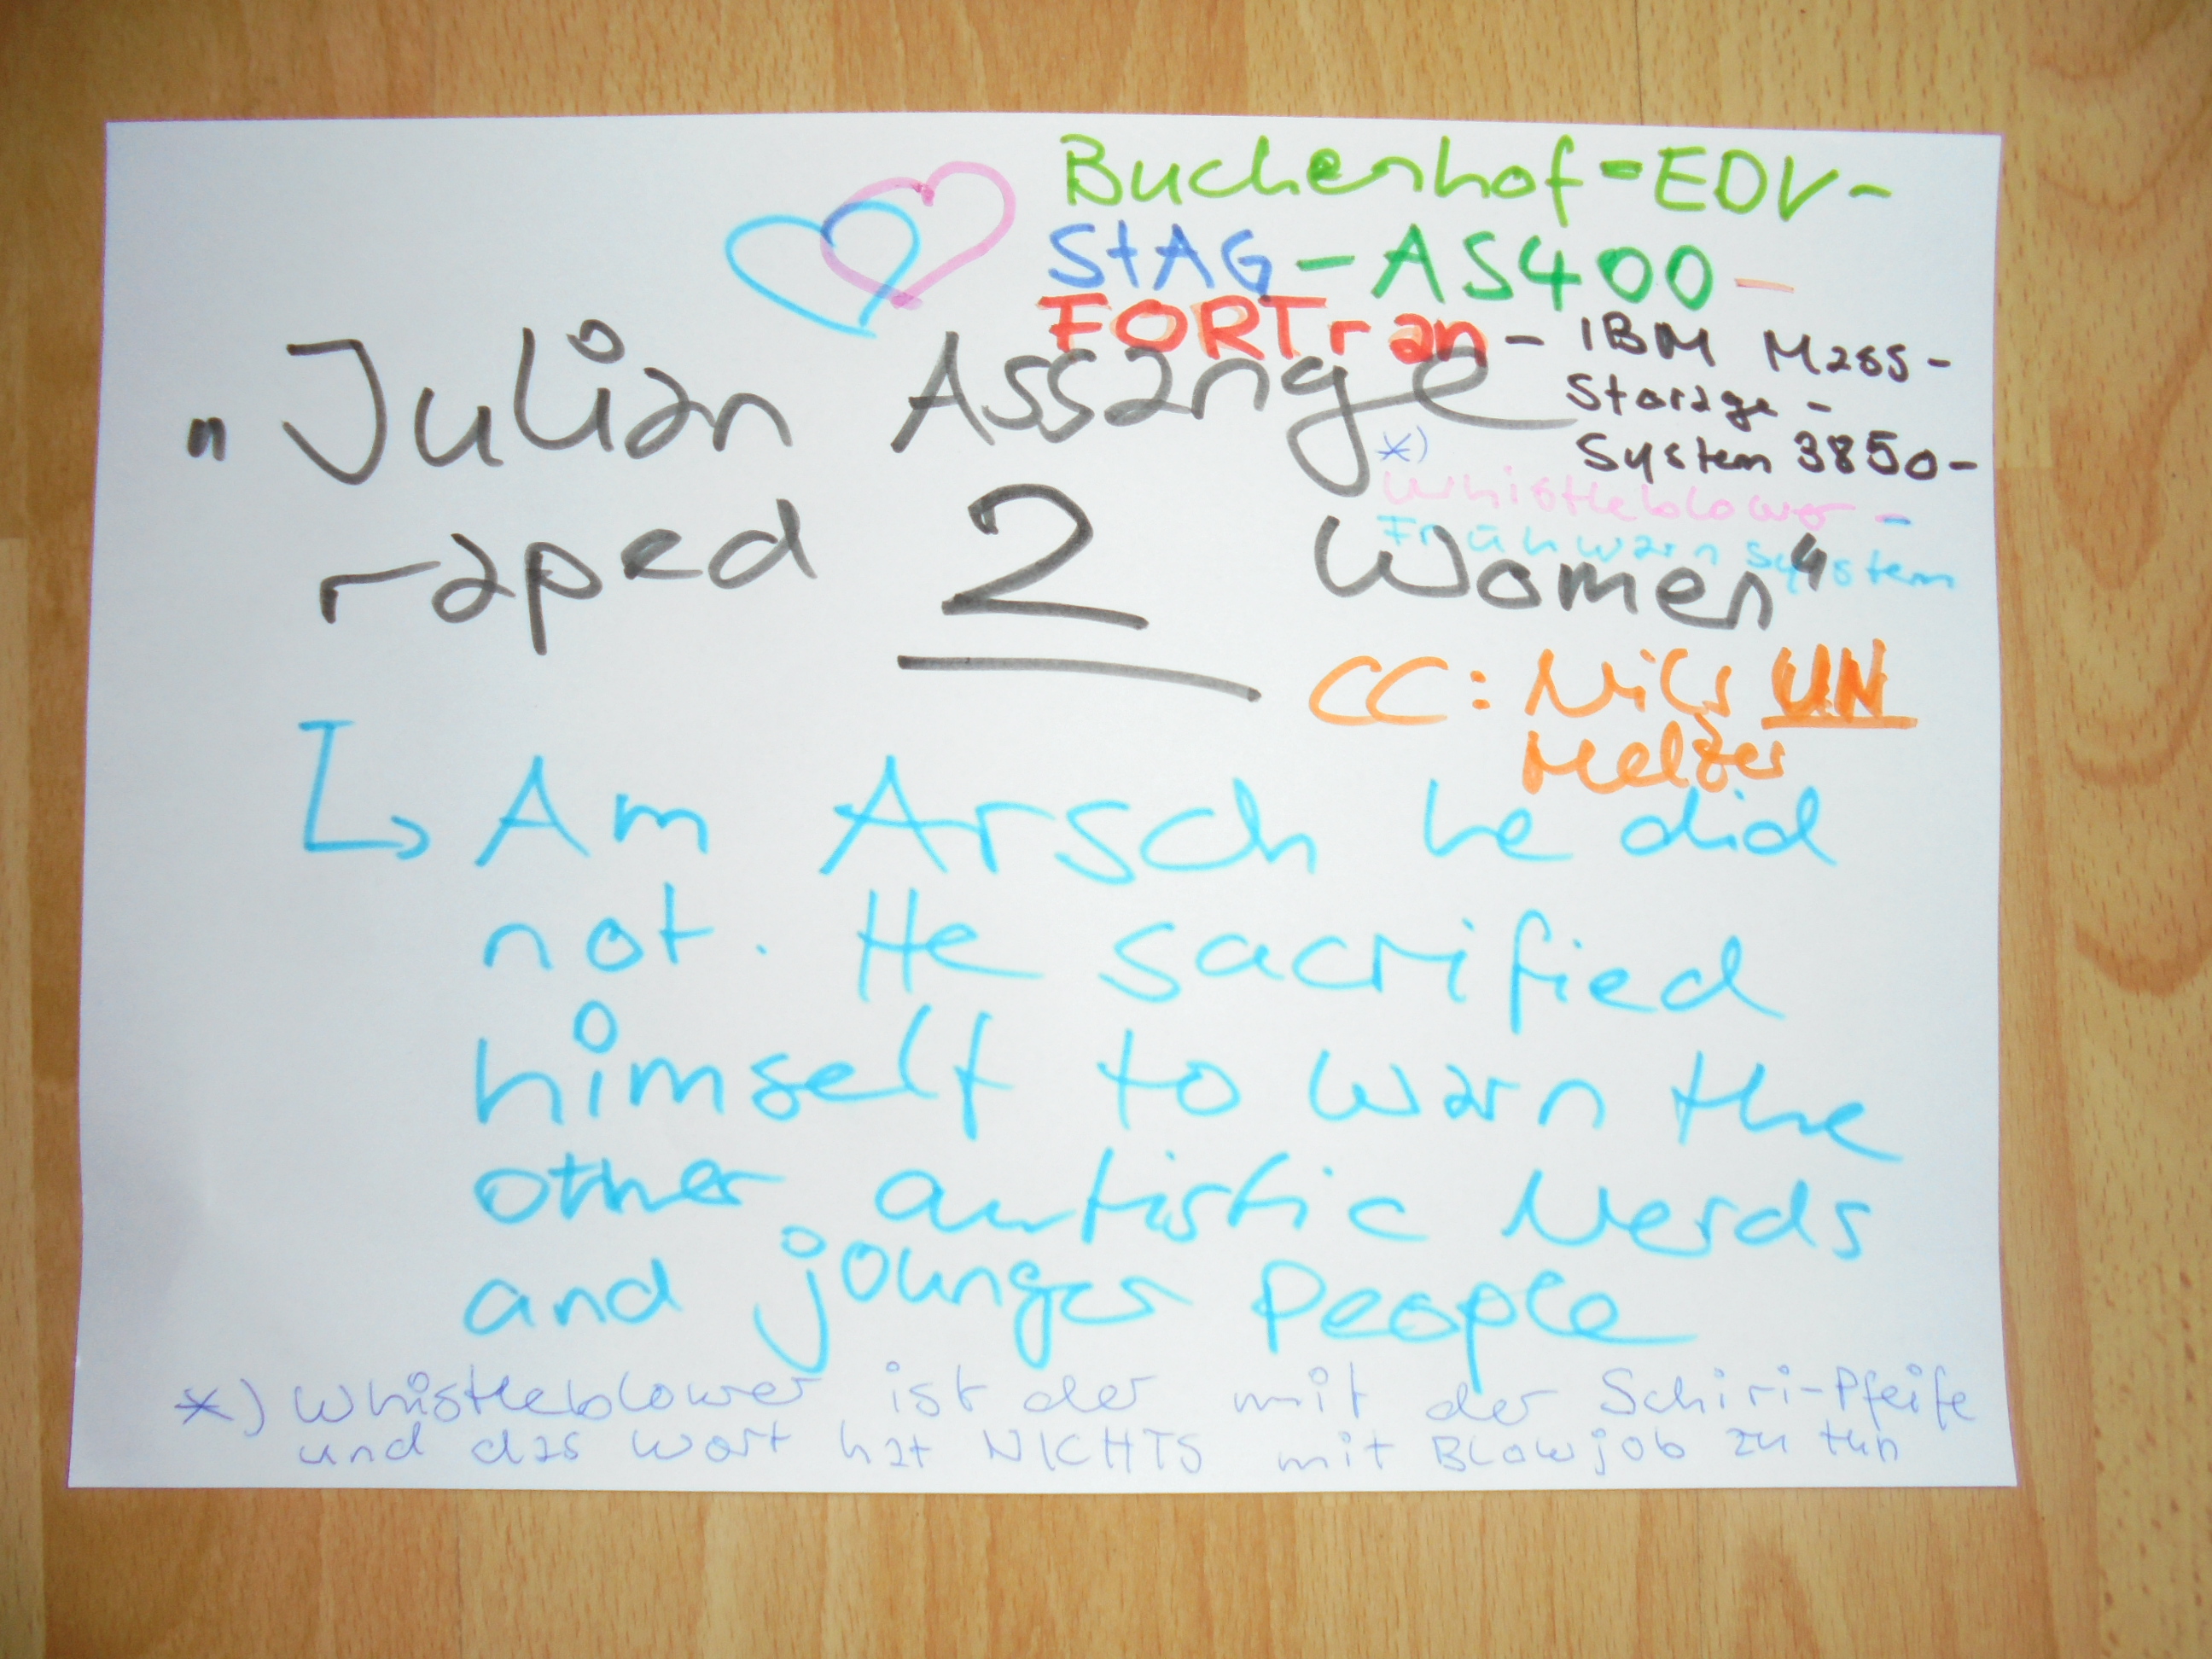 Buchenhof-EDV-
StAG-AS400-
FORTran - IBM Mass-
Storage -
System 3850-
*)
Whistleblower -
Frühwarnsystem
"Julian Assange
raped 2 Women"
CC: Nils UN
Melzer
↳ Am Arsch he did
not. He sacrified
himself to warn the
other autistic Nerds
and jounger People
*) Whistleblower ist der mit der Schiri-Pfeife
und das Wort hat NICHTS mit Blowjob zu tun